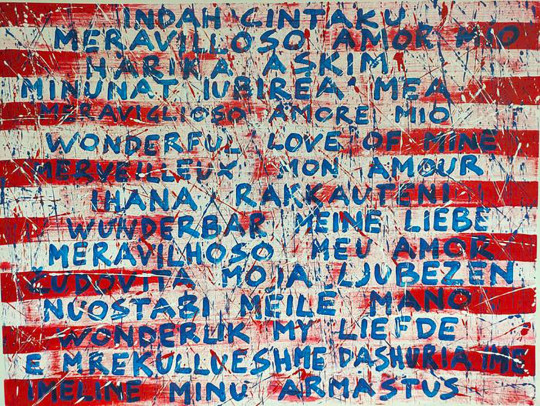 INDAH CINTAKU
MERAVILLOSO AMOR MIO
HARIKA ASKIM
MINUNAT IUBIREA MEA
MERAVIGLIOSO AMORE MIO
WONDERFUL LOVE OF MINE
MERVEILLEUX MON AMOUR
IHANA RAKKAUTENI
WUNDERBAR MEINE LIEBE
MERAVILHOSO MEU AMOR
ČUDOVITA MOJA LJUBEZEN
NUOSTABI MEILE MANO
WONDERLIK MY LIEFDE
E MREKULLUESHME DASHURIA IME
IMELINE MINU ARMASTUS